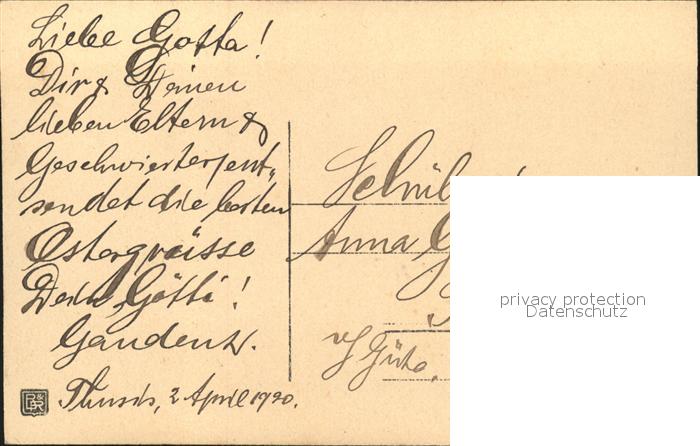 Liebe Gotta!
Dir & Deinen
lieben Eltern &
Geschwisterfent„
sendet die besten
Ostergrüsse
Dein Götti!
Gaudenz.
Thusis, 2 April 1920.
Anna
privacy protection
Datenschutz